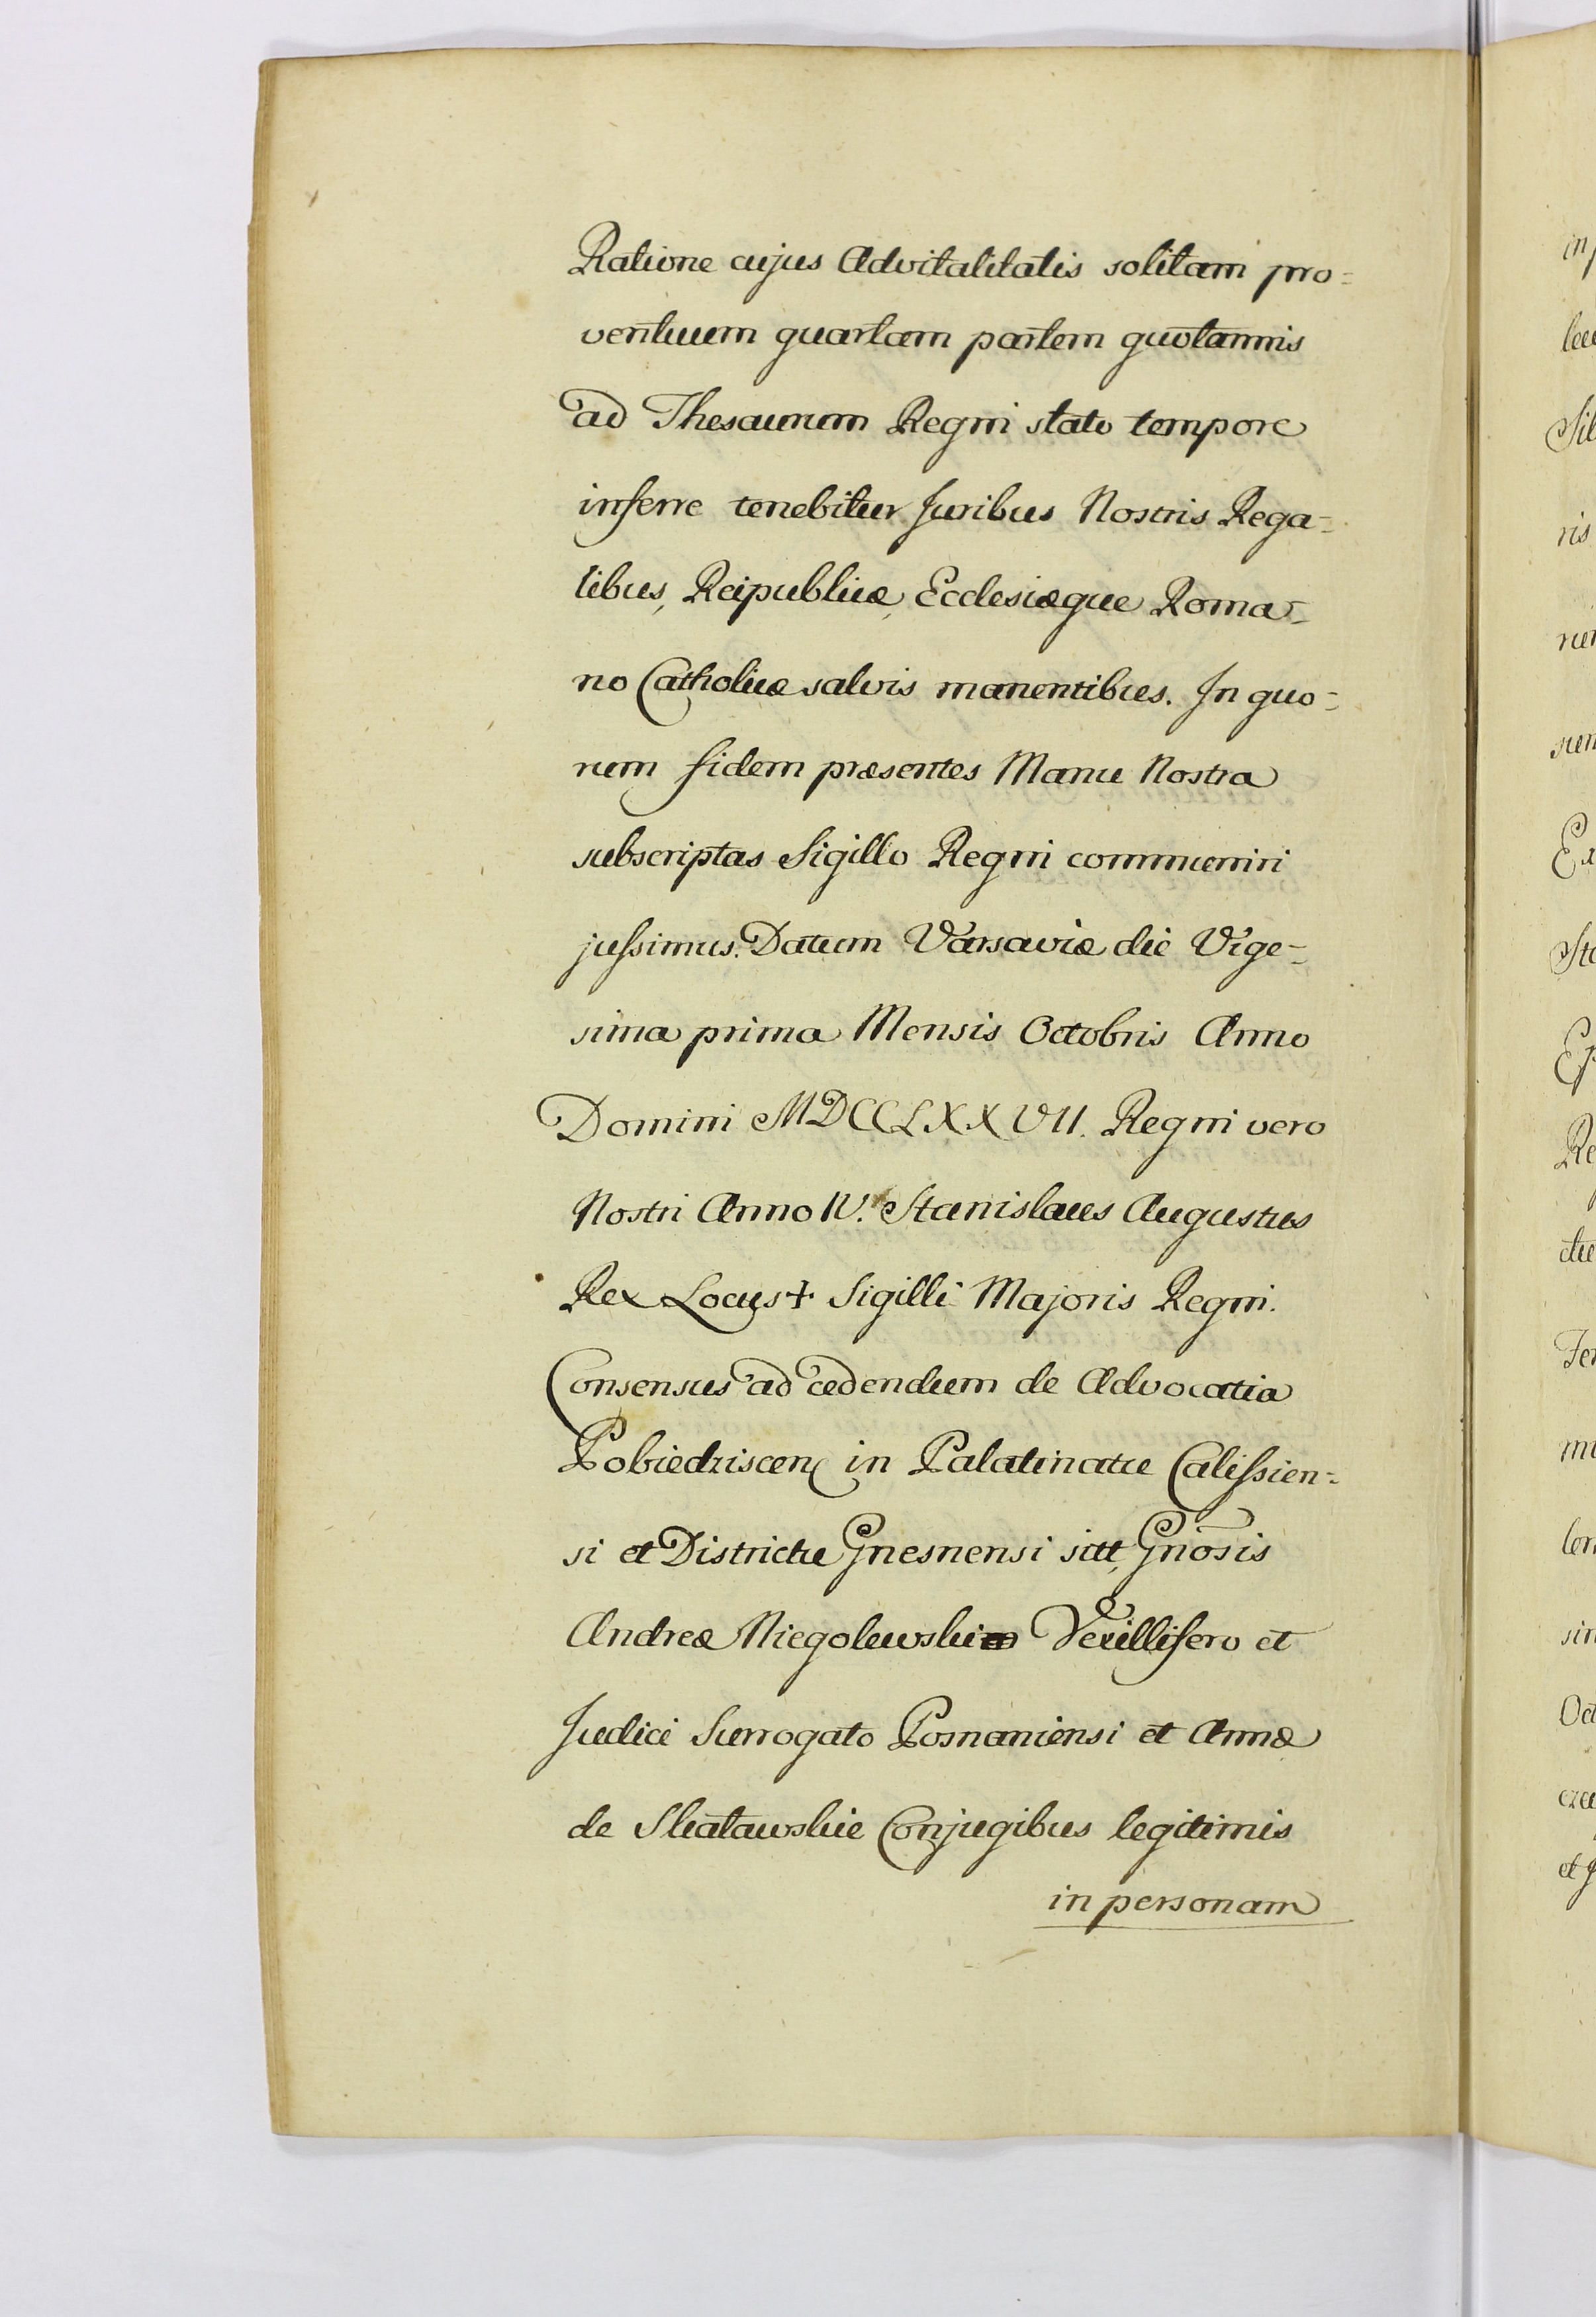 Ratione cujus Advitalitatis solitam pro=
ventuum quartam partem quotannis
ad Thesaurum Regni stato tempore
inferre tenebitur Juribus Nostris Rega=
libus, Reipublicæ, Ecclesiæque Roma=
no Catholicæ salvis manentibus. In quo=
rum fidem præsentes Manu Nostra
subscriptas Sigillo Regni communiri
jussimus. Datum Varsaviæ die Vige=
sima prima Mensis Octobris Anno
Domini MDCCLXXVII. Regni vero
Nostri Anno IV. Stanislaus Augustus
Rex Locus + Sigilli Majoris Regni.
Consensus ad cedendum de Advocatia
Pobiedziscen in Palatinatu Calissien=
si et Districtu Gnesnensi sitt, Gnosis
Andreæ Niegolewski Vexillifero et
Judici Surrogato Posnaniensi et Annæ
de Skaławskie Conjugibus legitimis
in personam